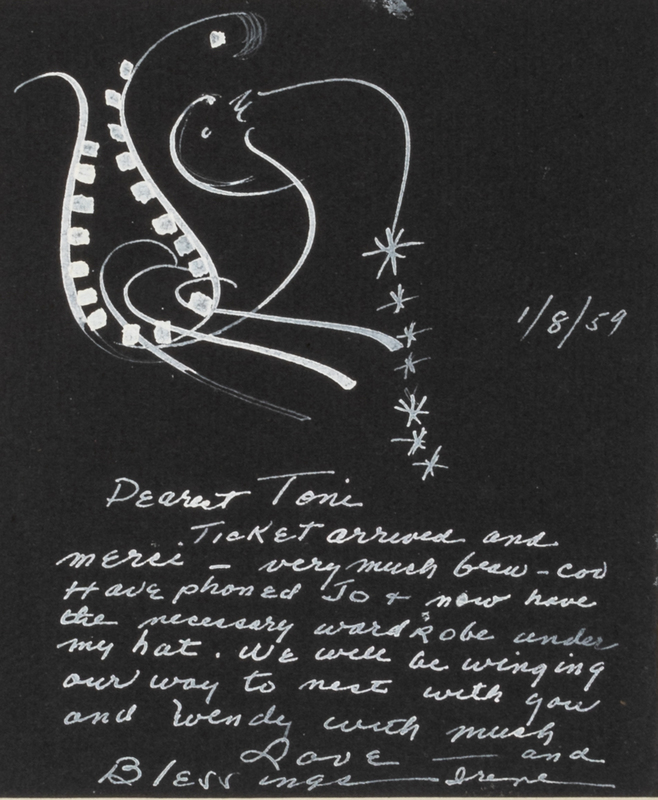 1/8/59
Dearest Toni
Ticket arrived and
merci – very much beau-coo
Have phoned Jo + now have
the necessary wardRobe under
my hat. We will be winging
our way to nest with you
and Wendy with much
Love — and
Blessings — Irene